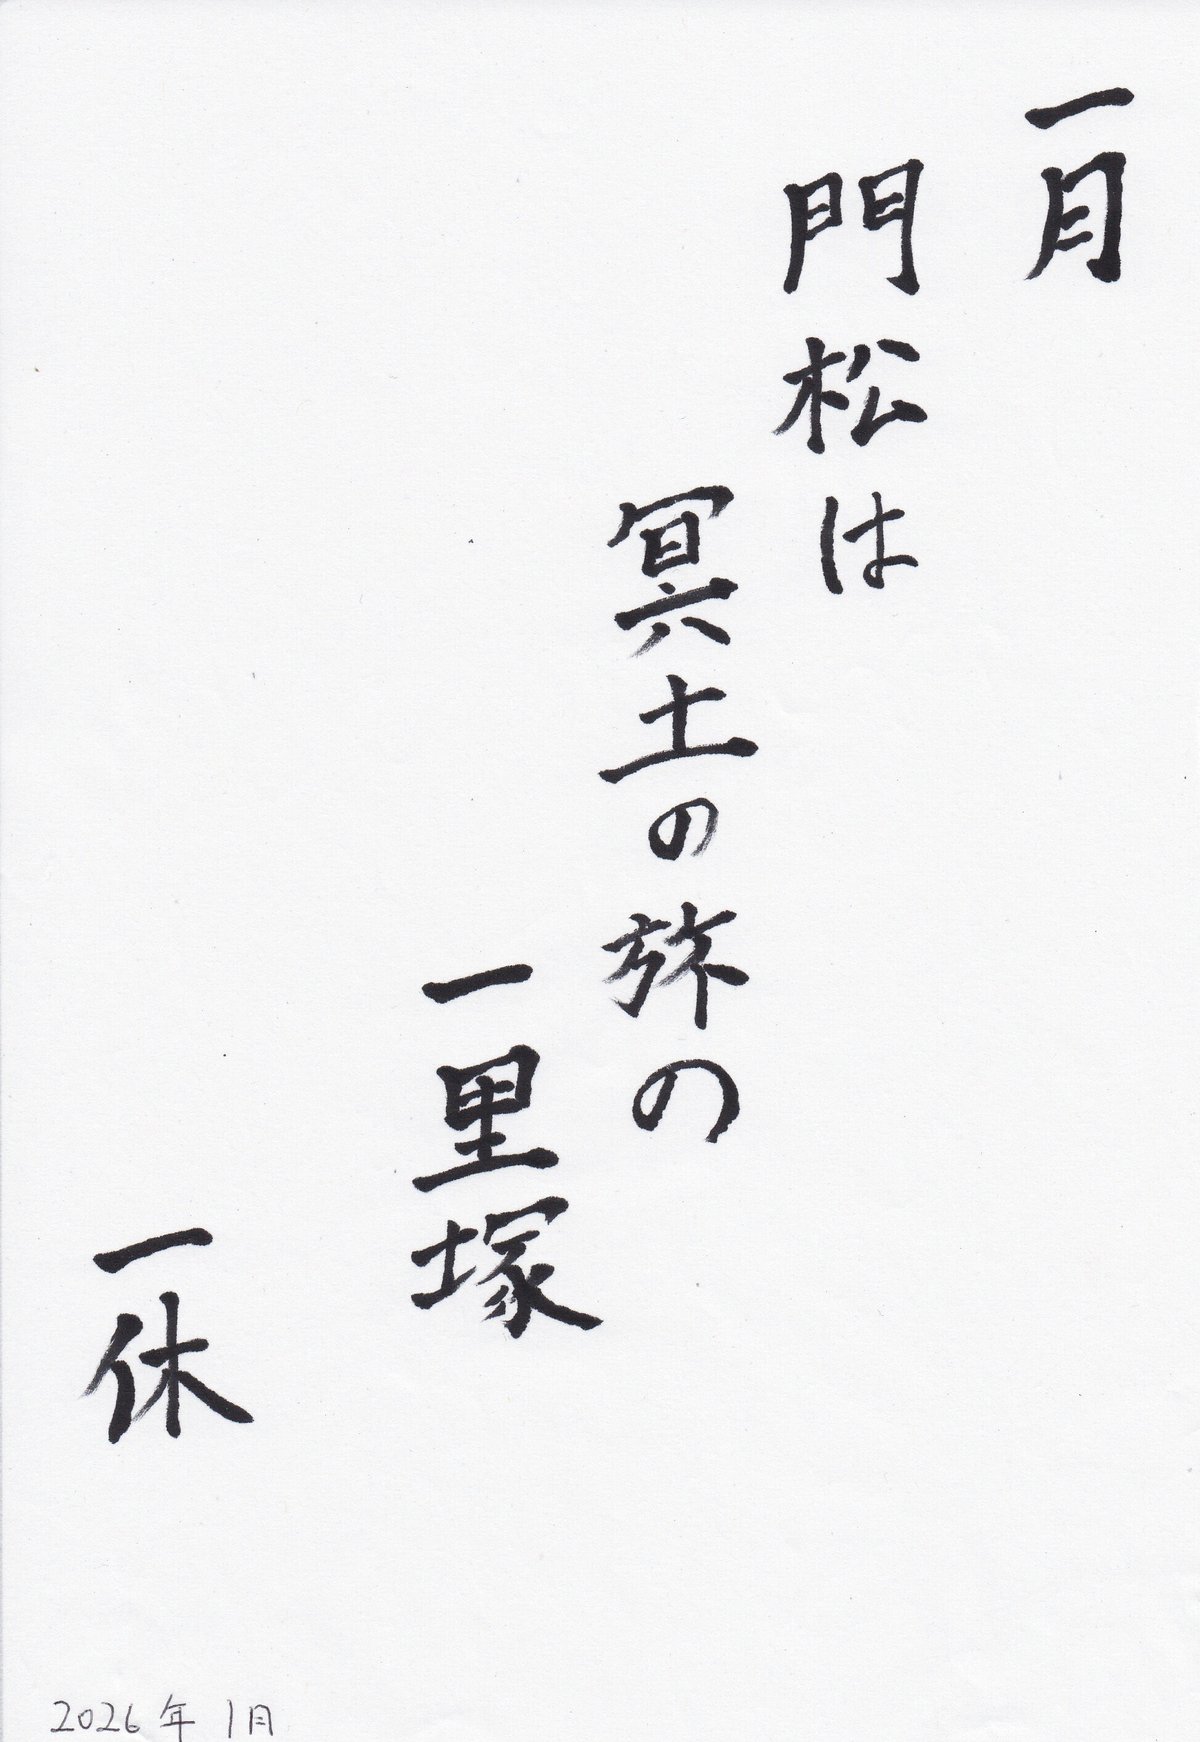 一月
門松は
冥土の弥の
一里塚
一休
2026年 1月